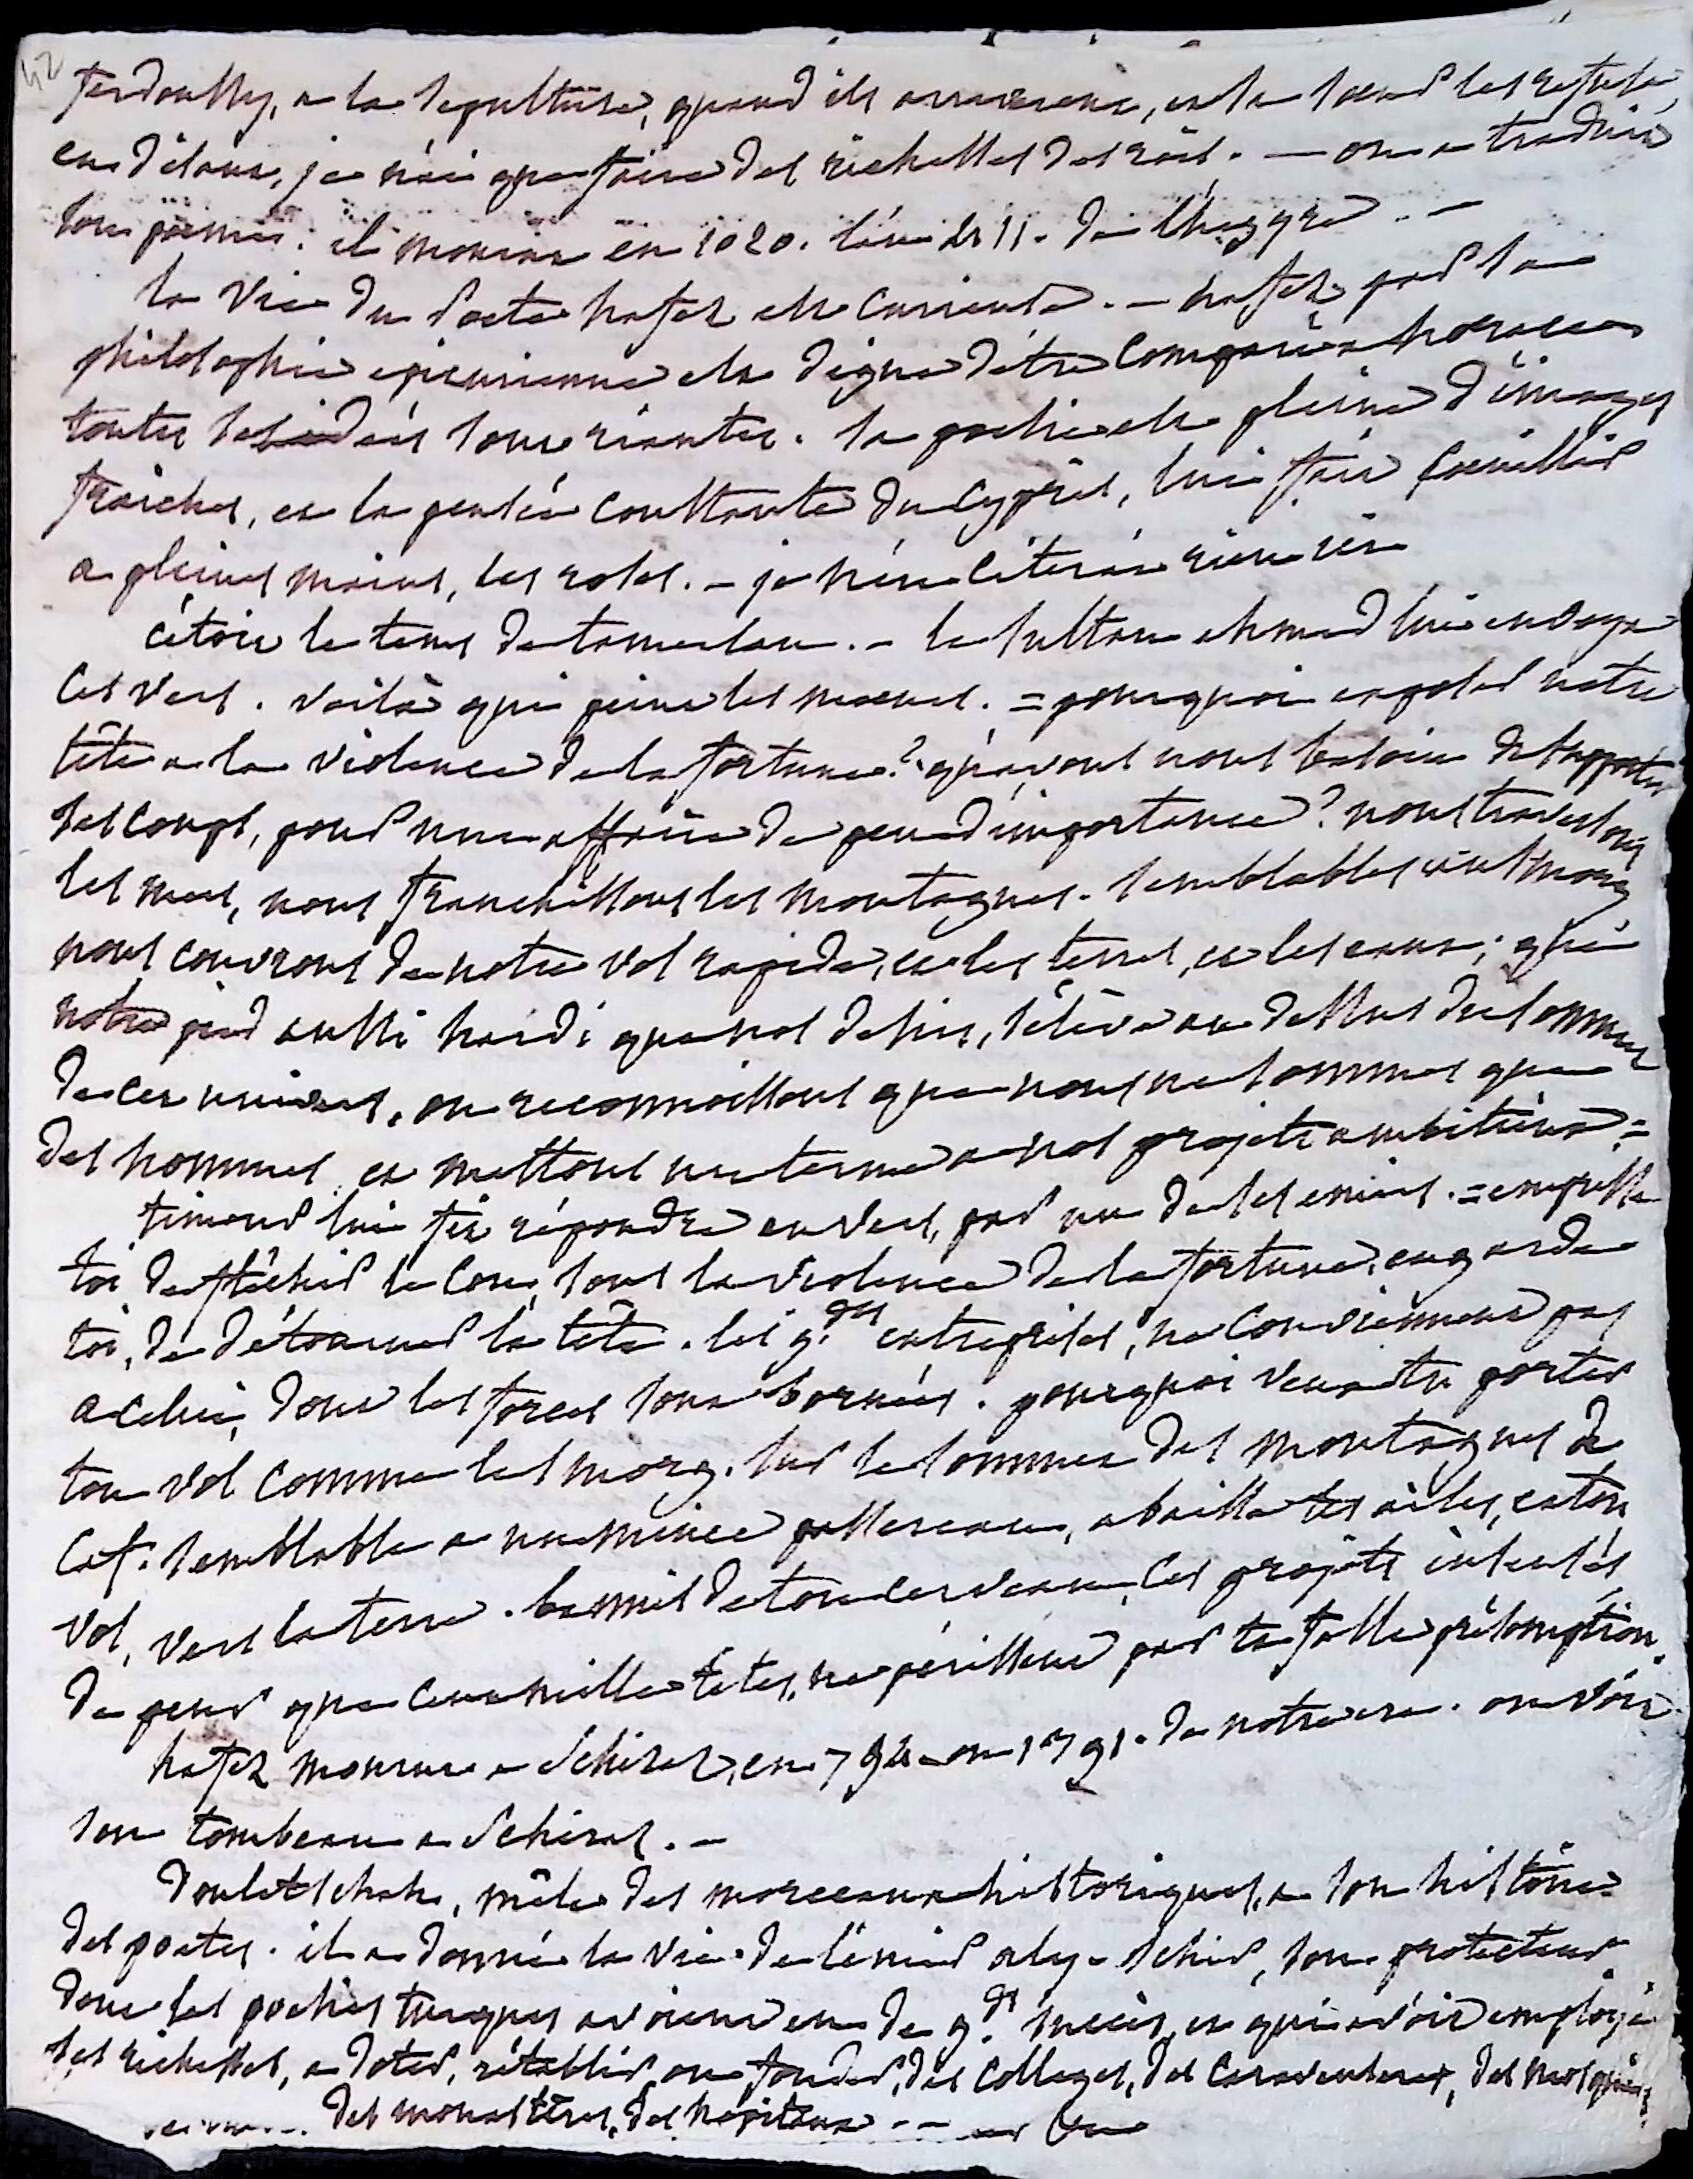 42
ferdoussy, a la sepulture, quand ils arriverent, et sa soeur les refusa,
en disant, je n'ai que faire des richesses des rois. — on a traduit
son poeme. il mourut en 1020. l'an de l'hegyre. —
la vie du poete hafez est curieuse. — hafez par sa
philosophie epicurienne est digne d'être comparé a horace
toutes ses idées sont riantes. sa poesie est pleine d'images
fraiches, et la pensée constante du cyprès, lui fait cueillir
a pleines mains, les roses. — je n'en citerai rien ici
c'étoit le tems de tamerlan. — le sultan ahmed lui envoya
ces vers. voilà qui peint les moeurs. = pourquoi exposer notre
tête a la violence de la fortune? qu'avons nous besoin de supporter
ses coups, pour une affaire de peu d'importance? nous traversons
les mers, nous franchissons les montagnes. semblables au simorg
nous couvrons de notre vol rapide, et les terres, et les eaux; que
notre pied aussi hardi que nos desirs, s'élève au dessus du sommet
de cet univers, ou reconnoissons que nous ne sommes que
des hommes et mettons un terme a nos projets ambitieux =
timour lui fit répondre en vers, par un de ses emirs. = empresse
toi de fléchir le cou, sous la violence de la fortune, engarde
toi, de détourner la tête. les g.des entreprises, ne conviennent pas
a celui, dont les forces sont bornées. pourquoi veux tu porter
ton vol comme le simorg. sur le sommet des montagnes de
Caf. semblable a un mince passereau, abaisse tes ailes, et ton
vol, vers la terre. bannis de ton cerveau, ces projets insensés
de peur que cent mille têtes, ne périssent par ta folle présomption.
hafez mourut a Schiraz, en 794 ou 1391. de notre ere. on voit
son tombeau a Schiras. —
Douletschah, mêle des morceaux historiques, a son histoire
des poetes. il a donné la vie de l'émir aly-Schir, son protecteur
dont les poesies turques avoient eu de g.ds succès, et qui avoit employé
ses richesses, a doter, rétablir, ou fonder, des colleges, des caravenserais, des mosquées,
des monastères, des hopitaux — —